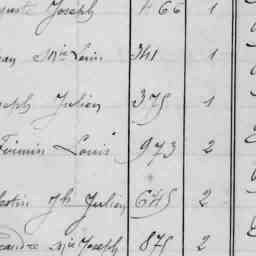 Joseph 466 1
Mie Louis 341 1
Joseph Julien 375 1
Firmin Louis 973 2
Jh Julien 645 2
Mie Joseph 875 2